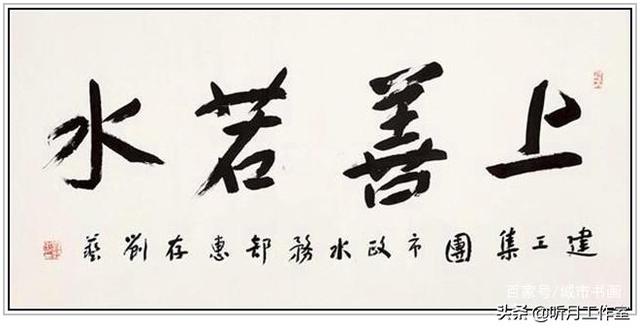 上善若水
建工集團市政水務部惠存劉藝
百家号/城市书画
头条@听月工作室